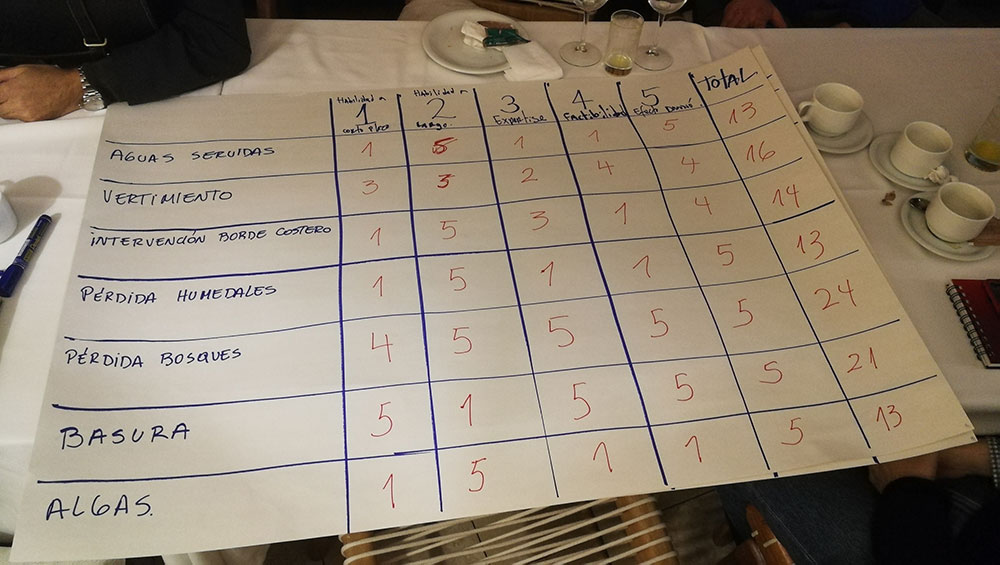 Habilidad a Habilidad a TOTAL
1 2 3 4 5
corto plazo largo. Expertise Factibilidad Efecto
AGUAS SERVIDAS 1 5 1 1 5 13
VERTIMIENTO 3 3 2 4 4 16
INTERVENCIÓN BORDE COSTERO 1 5 3 1 4 14
PÉRDIDA HUMEDALES 1 5 1 1 5 13
PÉRDIDA BOSQUES 4 5 5 5 5 24
BASURA 5 1 5 5 5 21
ALGAS. 1 5 1 1 5 13